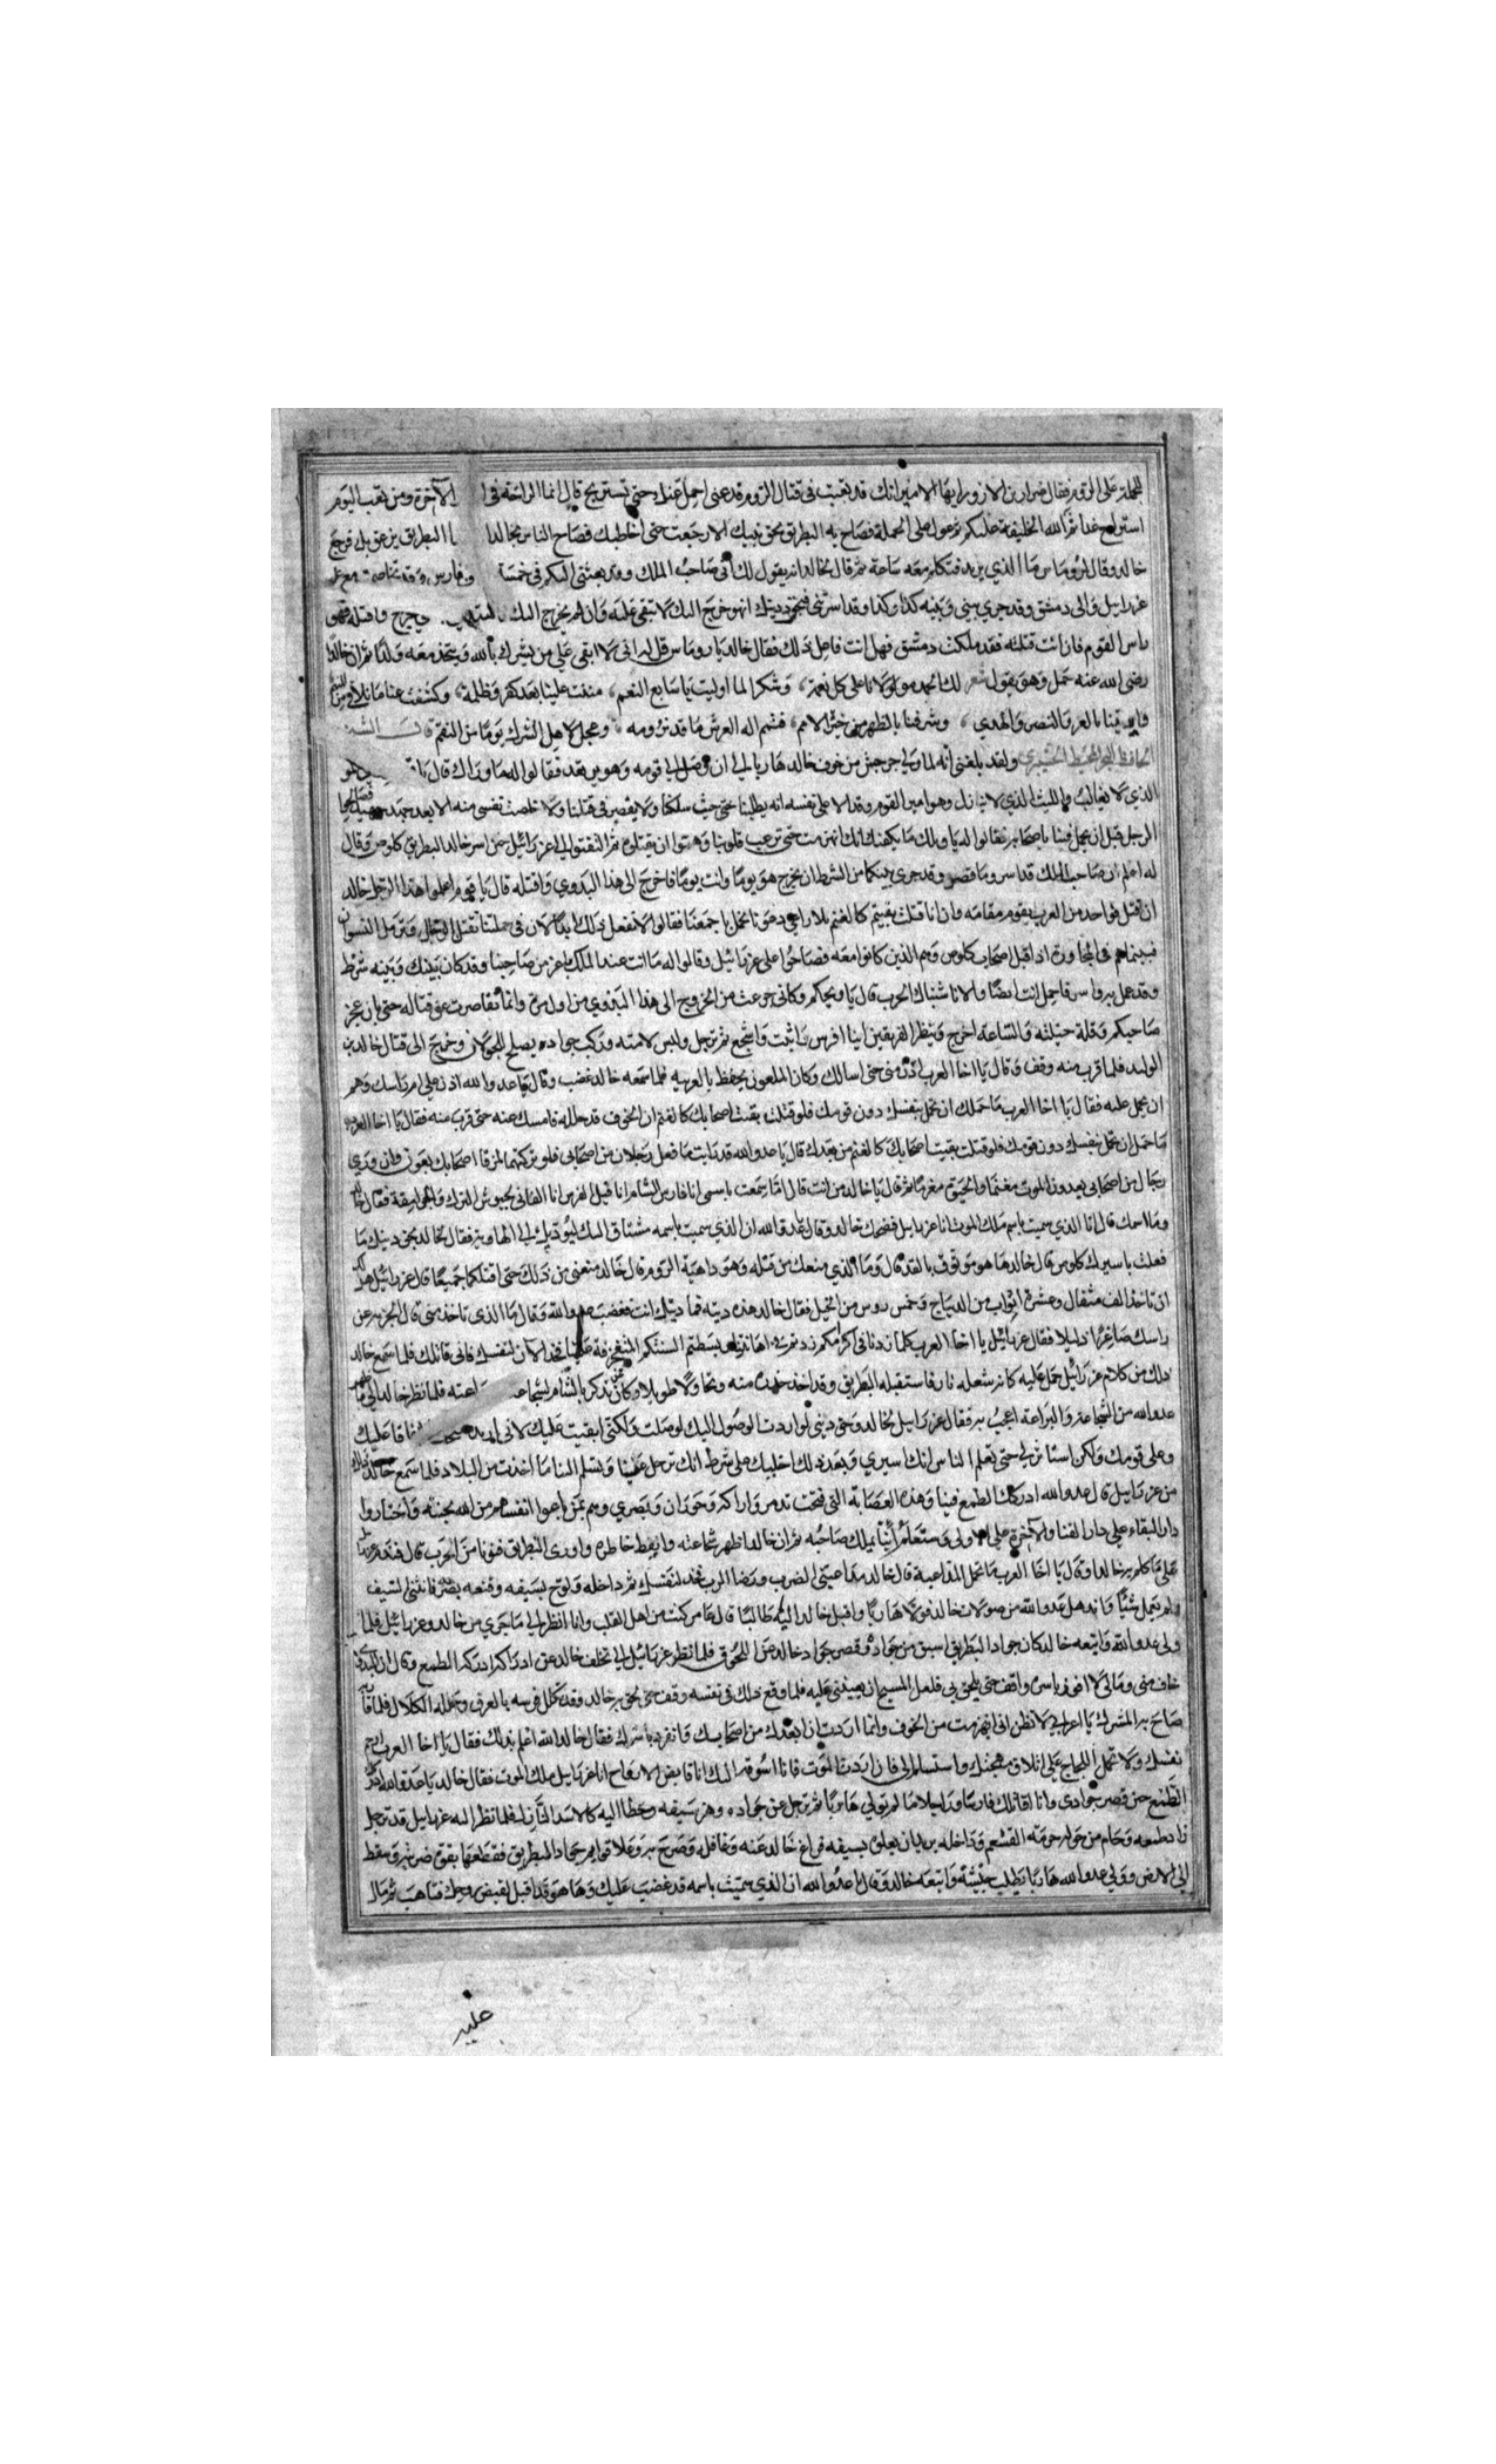 للحملة على الروم فقال ضرار بن الازور ايها الامير انك قد تعبت في قتال الروم قدعني احمل عنك حتى تستريح قال انما الراحة في الآخرة ومن تعب اليوم
استراح غدا ثم الله الخليفة عليكم ثم عول على الحملة فصاح به البطريق بحق نبيك الا رجعت حتى اخاطبك فصاح الناس بخالد البطريق يزعق بك فرجع
خالد وقال لروماس ما الذي يريد فتكلم معه ساعة ثم قال لخالد انه يقول لك اني صاحب الملك وقد بعثني اليكم في خمسة فارس وقد تخاصمت مع
عزرابيل والى دمشق وقد جري بيني وبينه كذا وكذا وقد اسرتني فبحق دينك ان هو خرج اليك لا تبقى عليه وان لم يخرج اليك يخرج واقتله فهو
راس القوم فان انت قتلته فقد ملكت دمشق فهل انت فاعل ذلك فقال خالد يا روماس قل له اني لا ابقى علي من يشرك بالله ويتخذ معه ولدا ثم ان خالدا
رضى الله عنه حمل وهو يقول شعر لك الحمد مولانا على كل نعمة وشكرا لما اوليت يا سابغ النعم مننت علينا بعد كفر وظلمة وكشفت عنا ما نلاقي من
وايدتنا بالعز والنصر والهدي وشرفتنا بالطهر من خير الامم فتمم اله العرش ما قد نرومه وعجل لاهل الشرك يوما من النقم
ولقد بلغني انه لما ولى جرجيس من خوف خالد هاربا الي ان وصل الي قومه وهو يرتعد فقالوا له ما وراك قال يا
الذي لا يغالب والليث الذي لا ينازل وهو امير القوم وقد الا على نفسه انه يطلبنا حتى حيث سلكنا ولا يقصر في قتلنا وما خلصت نفسي منه الا بعد جهد
الرجل قبل ان يحمل فينا باصحابه فقالوا له يا ويلك ما يكفيك انك انهزمت حتى ترعب قلوبنا وهموا ان يقتلوه ثم التفتوا الي عزرائيل حين اسر خالد البطريق كلوص وقال
له اعلم ان صاحب الملك قد اسر وما قصر وقد جرى بينكما من الشرط ان يخرج هو يوما وانت يوما فاخرج الى هذا البدوي واقتله قال يا قوم اعلموا هذا الرجل خالد
ان قتل فواحد من العرب يقوم مقامه وان انا قتلت بقيتم كالغنم بلا راعي دعونا نحمل باجمعنا فقالوا لا نفعل ذلك ابدا لان في حملتنا تقتل الرجال وترمل النسوان
فبينما هم في المحاورة اذ اقبل اصحاب كلوص وهم الذين كانوا معه فصاحوا على عزرائيل وقالوا له ما انت عند الملك باعز من صاحبنا وقد كان بينك وبينه شرط
وقد حمل هو واسر فاحمل انت ايضا والا ناشبناك الحرب قال يا ويحكم وكاني جزعت من الخروج الى هذا البدوي من اول مرة وانما تقاصرت عن قتاله حتى بان عجز
صاحبكم وقلة حيلته والساعة اخرج وينظر الفريقين اينا افرس واثبت واشجع ثم ترجل ولبس لامته وركب جواده يصلح للجولان وخرج الى قتال خالد بن
الوليد فلما قرب منه وقف وقال يا اخا العرب ادن مني حتى اسالك وكان الملعون يحفظ بالعربيه فلما سمعه خالد غضب وقال يا عدو الله ادن علي ام راسك وهم
ان يحمل عليه فقال يا اخا العرب ما حملك ان تحمل بنفسك دون قومك فلو قتلت بقيت اصحابك كالغنم ان الخوف قد حل له فامسك عنه حتى قرب منه فقال يا اخا العرب
ما حمل ان تحمل بنفسك دون قومك فلو قتلت بقيت اصحابك كالغنم من بعدك قال يا عدو الله قد رايت ما فعل رجلان من اصحابي فلو تركتهما لمزقا اصحابك بعون وان وري
رجال من اصحابي يعدون الموت مغنما والحيوة مغرما ثم قال يا خالد من انت قال اما سمعت باسمي انا فارس الشام انا قبل الفرس انا الفاني لجيوش الترك والجرامقة فقال خالد
وما اسمك قال انا الذي سميت باسم ملك الموت انا عزرابيل فضحك خالد وقال يا عدو الله ان الذي سميت باسمه مشتاق اليك ليؤديك الي الهاوية فقال لخالد بحق دينك ما
فعلت باسيرك كلوص قال خالد ها هو موثوق بالقد قال وما الذي منعك من قتله وهو داهية الروم قال خالد منعني من ذلك حتى اقتلكما جميعا قال عزرائيل هل
ان تاخذ الف مثقال وعشرة اثواب من الديباج وخمس روس من الخيل فقال خالد هذه ديته فما ديتك انت فغضب عدو الله وقال ما الذي تاخذ مني قال الجزية عن
راسك صاغرا ذليلا فقال عزرائيل يا اخا العرب كلما زدنا في اكرامكم زدتم في اهانتنا بسطتم السنتكم علينا فخذ الآن لنفسك فاني قاتلك فلما سمع خالد
ذلك من كلام عزرائيل حمل عليه كانه شعلة نار فاستقبله البطريق وقد اخذ حذره منه وتجاولا طويلا وكان يذكر بالشام لشجاعته فلما نظر خالد الي ما
عدو الله من الشجاعة والبراعة اعجب به فقال عزرابيل لخالد وحق ديني لو اردت الوصول اليك لوصلت ولكني ابقيت عليك لاني اريد
وعلى قومك ولكن استاسر لي حتى تعلم الناس انك اسيري وبعد ذلك اخليك على شرط انك ترحل عنا وتسلم الينا ما اخذت من البلاد فلما سمع خالد ذلك
من عزرابيل قال عدو الله ادركك الطمع فينا وهذه العصابة التي فتحت تدمر واركه وحوران وبصري وهم ممن باعوا انفسهم من الله بجنته واختاروا
دار البقاء على دار الفنا والآخرة على الاولى وستعلم اينا يملك صاحبه ثم ان خالد اظهر شجاعته وايقظ خاطره واورى البطريق فنونا من الحرب قال فندم
على ما كلم به خالدا وقال يا اخا العرب ما تحمل المداعبة قال خالد مداعبتي الضرب ورضا الرب فخذ لنفسك ثم داخله ولوح بسيفه وقنعه بضربة فانثنى السيف
ولم يعمل شيئا واندهل عدو الله من صولات خالد فولا هاربا واقبل خالد اليه طالبا قال عامر كنت من اهل القلب وانا انظر الي ما جري من خالد وعزرائيل فلما
ولى عدو الله واتبعه خالد كان جواد البطريق اسبق من جواده وقصر جواد خالد عن اللحوق فلما نظر عزرائيل الي تخلف خالد عن ادراكه ادركه الطمع وقال ان البدوي
خاف مني ومالي لا اقف واقف حتى يلحق بي فلعل المسيح ان يعينني عليه فلما وقع ذلك في نفسه وقف حتى لحق به خالد وقد كلل فرسه بالعرق وحمله الكلال فلما قاربه
صاح به المشرك يا اعرابي لا تظن اني انهزمت من الخوف وانما اردت ان ابعدك من اصحابك وانفرد باسرك فقال خالد الله اعلم بذلك فقال يا اخا العرب ارحم
نفسك ولا تحمل اللجاج على اتلاق مهجتك واستسلم الي فان اردت الموت فانا اسوقه اليك انا قابض الارواح انا عزرابيل ملك الموت فقال خالد يا عدو الله
الطمع حين قصر جوادى وانا اقاتلك فارسا وراجلا ما لم تولي هاربا ثم ترجل عن جواده وهز سيفه وخطا اليه كالاسد الزاير فلما نظر اليه عزرابيل قد ترجل
زاد طمعه وحام من حوله حومة القشعم وداخله يريد ان يعلوه بسيفه فراغ خالد عنه وغافله وصرخ به وعلا قوايم جواد البطريق فقطعها بقوة ضربته فسقط
إلى الارض وولى عدو الله هاربا يطلب جيشه واتبعه خالد وقال يا عدو الله ان الذي سميت باسمه قد غضب عليك وها هو قد اقبل لقبض روحك فتاهب ثم مال
عليه